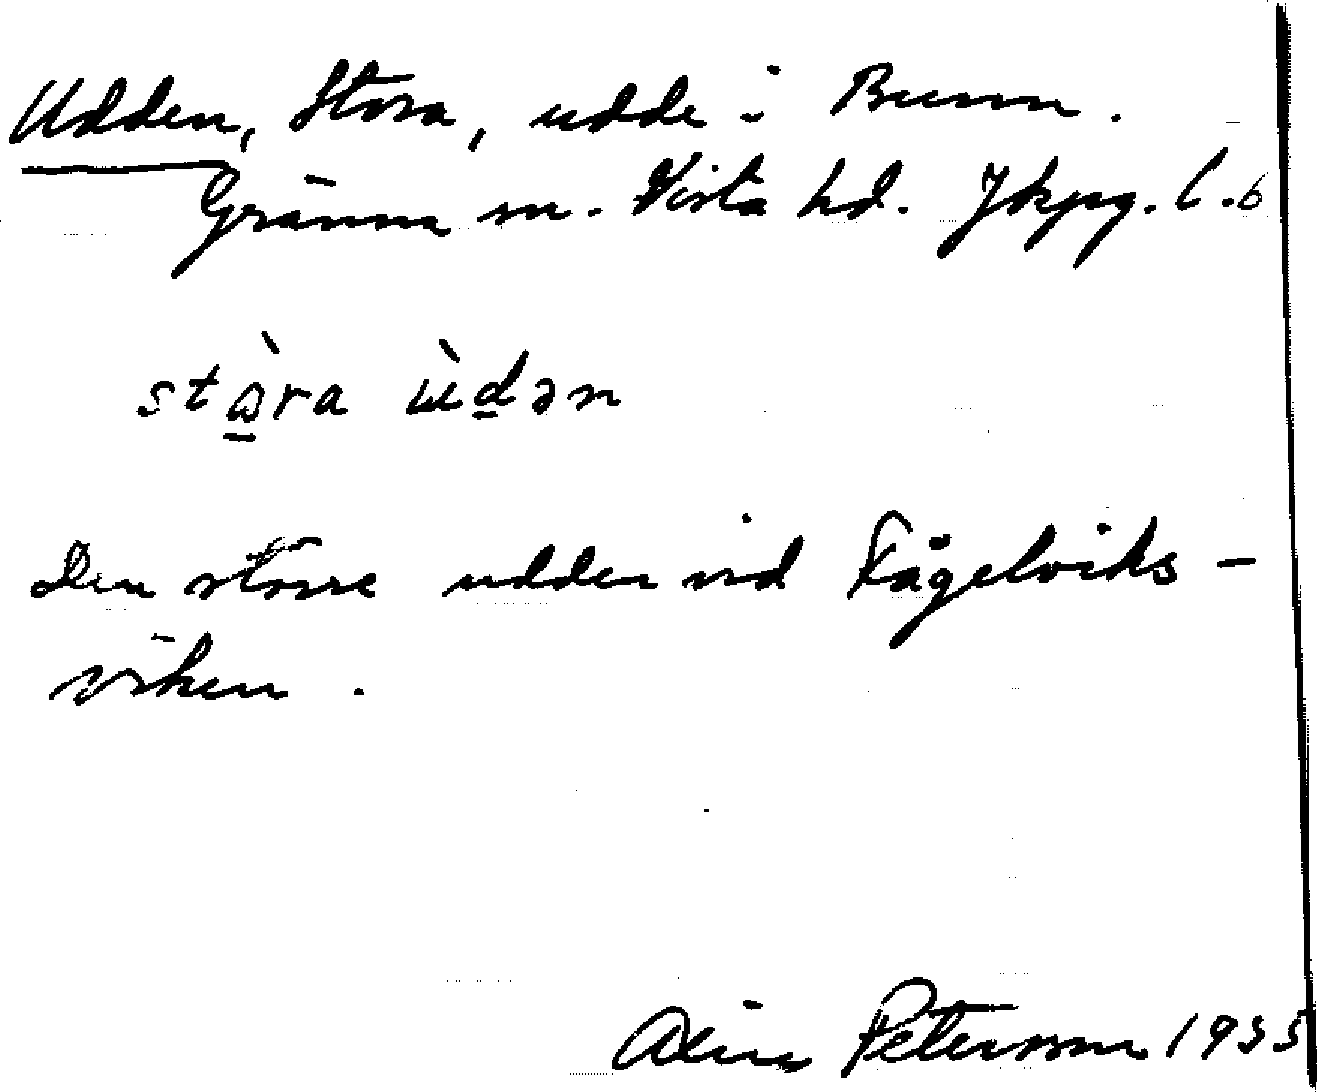 Udden, Stora, udde i Bunn.
Gränna sn. Vista hd. Jkpg. l. 6
stɷ̀ra ùdən
Den större udden vid Fågelviks-
viken.
Petersson 1935